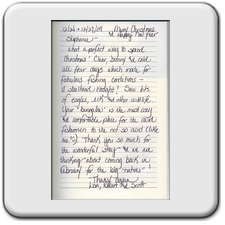 12/26 - 12/29/09 Merry Christmas
& Happy New Year
Stephanie -
What a perfect way to spend
Christmas! Clear, sunny & cold
all four days which made for
fabulous fishing conditions -
& steelhead caught! Saw lots
of eagles, elk & other wildlife.
Your "bungalow" is the most cozy
& comfortable place for the avid
fishermen to the not so avid (like
me). Thank you so much for
the wonderful stay & we are
thinking about coming back in
February for the big "natives"!
Thanks again,
Robert & Scott